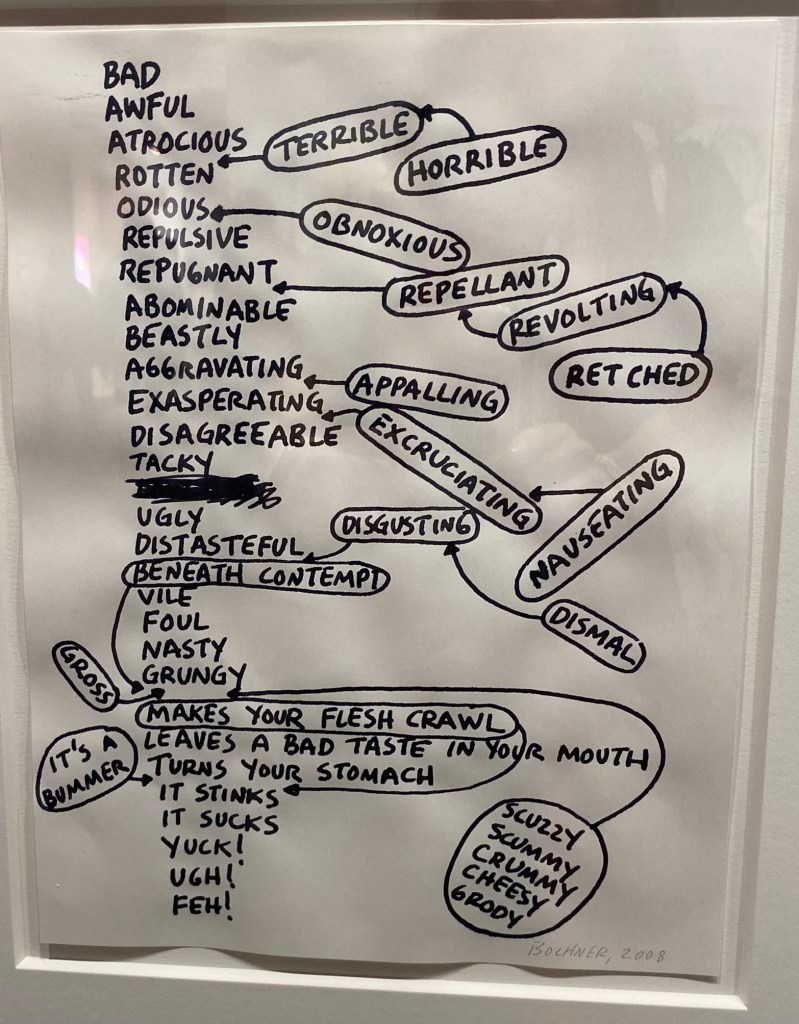 BAD
AWFUL
ATROCIOUS
TERRIBLE
HORRIBLE
ROTTEN
ODIOUS
OBNOXIOUS
REPULSIVE
REPUGNANT
REPELLANT
REVOLTING
RETCHED
ABOMINABLE
BEASTLY
AGGRAVATING
APPALLING
EXASPERATING
EXCRUCIATING
NAUSEATING
DISAGREEABLE
TACKY
UGLY
DISTASTEFUL
DISGUSTING
DISMAL
BENEATH CONTEMPT
VILE
FOUL
NASTY
GRUNGY
GROSS
MAKES YOUR FLESH CRAWL
LEAVES A BAD TASTE IN YOUR MOUTH
TURNS YOUR STOMACH
IT'S A
BUMMER
IT STINKS
IT SUCKS
YUCK!
UGH!
FEH!
SCUZZY
SCUMMY
CRUMMY
CHEESY
GRODY
BOCHNER, 2008